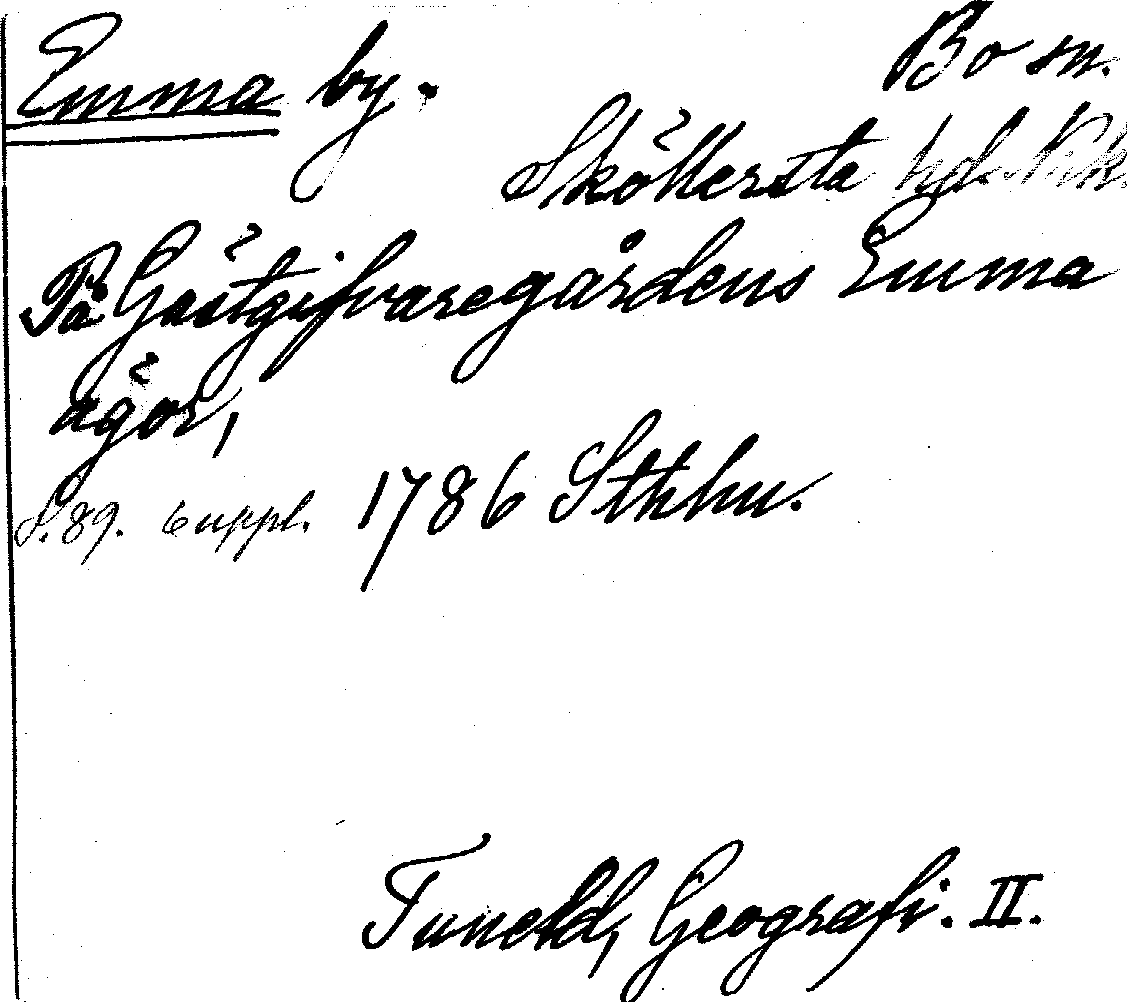 Emma by.
Bo sn.
Sköllersta hd. Närk.
På Gästgifvaregårdens Emma
ägor,
S. 89. 6 uppl. 1786 Sthlm.
Tuneld, Geografi. II.